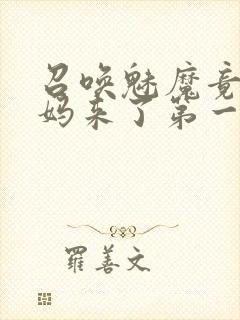 召唤魅魔竟
妈来了第一
羅善文